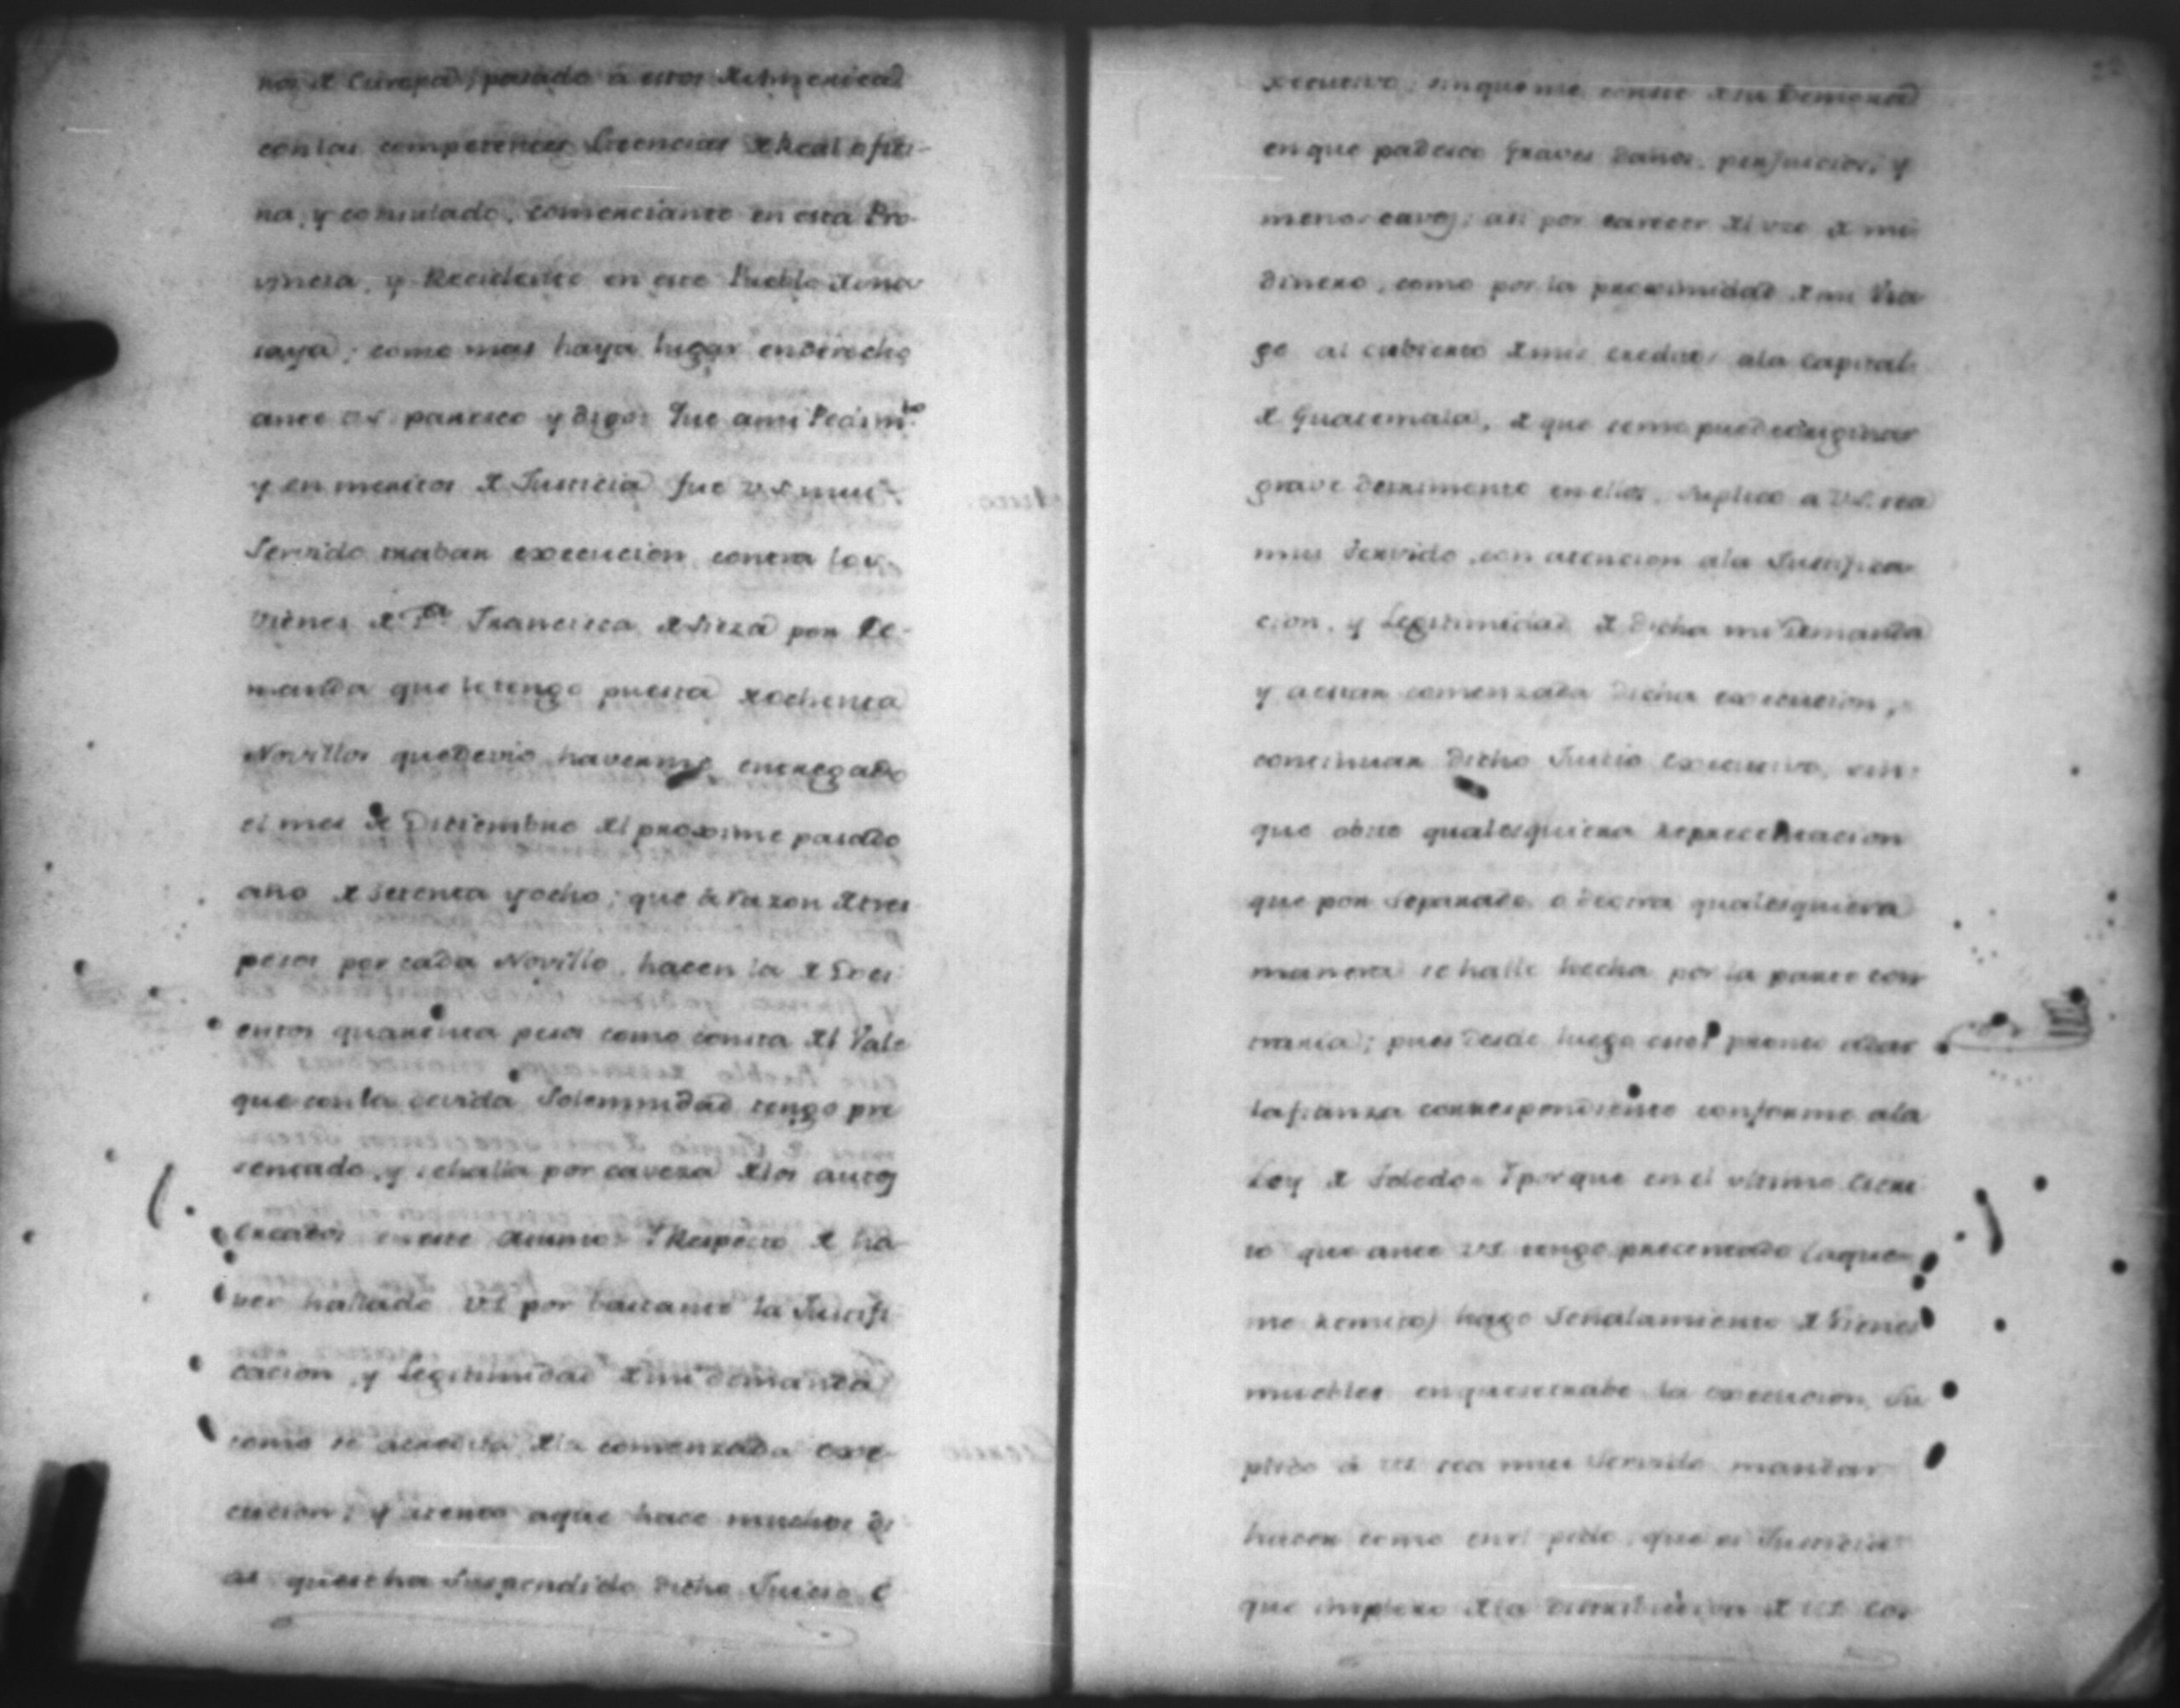 nos de Europa, pasado a estos de la America
con las competentes Licencias de Real ofici-
na, y consulado, comerciante en esta Pro-
vincia, y Recidente en este Pueblo de
saya; como mas haya lugar en derecho
ante VS. paresco y digo: Que a mi Pedim.to
y en meritos de Justicia fue VS mui
Servido trabar execucion contra los
vienes de D.a Francisca de por De-
manda que le tengo puesta de ochenta
Novillos que devio haverme entregado
el mes de Diciembre del proximo pasado
año de setenta y ocho; que à razon de tres
pesos por cada Novillo, hacen la de Doci-
entos quarenta pesos como consta del Vale
que con la devida Solemnidad tengo pre
sentado, y se halla por caveza de los autos
creados en este asumto. Y Respecto de ha
ver hallado VS por bastante la Justifi
cacion, y Legitimidad de mi demanda
como se acredita de la comenzada exe-
cucion; y atento a que hace muchos di
as que se ha Suspendido dicho Juicio e
xecutivo, sin que me conste de su Demora
en que padesco graves daños, perjuicios, y
menoscavos; asi por carecer del uso de mi
dinero, como por la proximidad de mi Via
ge al cubierto de mis creditos a la Capital
de Guatemala, de que se me puede originar
grave detrimento en ellos, Suplico a VS. sea
mui Servido, con atencion a la Justifica
cion, y Legitimidad de dicha mi Demanda
y a estar comenzada dicha execucion,
continuar dicho Juicio executivo, sin
que obste qualesquiera reprecentacion
que por Separado, o de otra qualesquiera
manera se halle hecha por la parte con
traria; pues desde luego estoi pronto a dar
la fianza correspondiente conforme a la
Ley de Toledo. Y porque en el ultimo Escri
to que ante VS tengo precentado (a que
me remito) hago Señalamiento de Vienes
muebles en que se trabe la execucion Su
plico à VS sea mui Servido mandar
hacer como en el pido, que es Justicia
que imploro de la distribucion de VS Cos